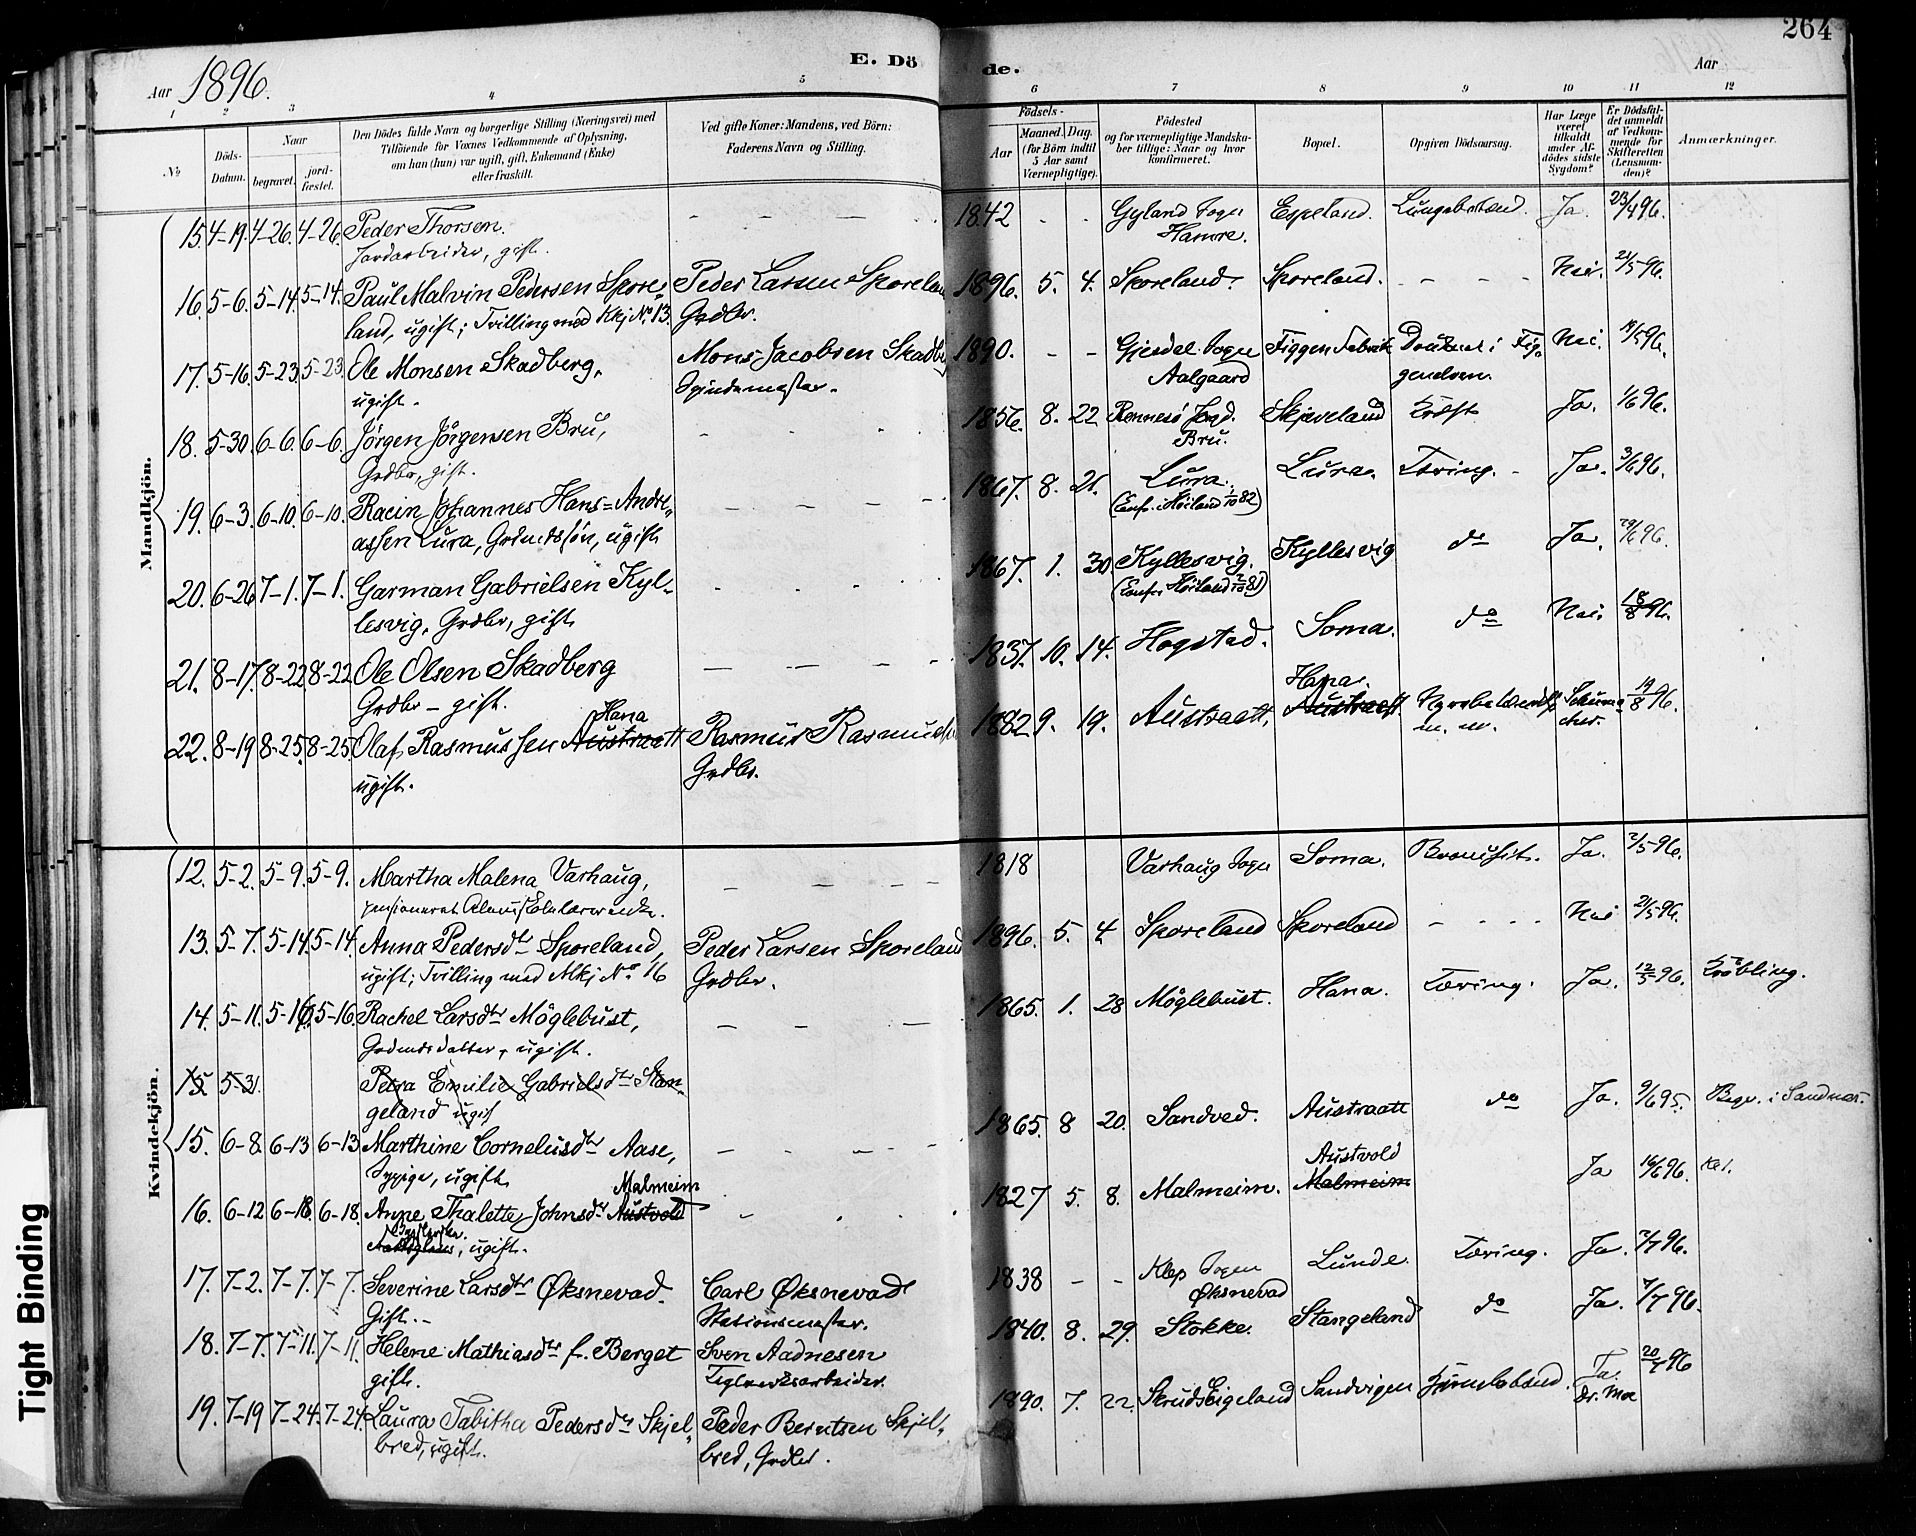 264
E. Dö de.
Aar 1896. Aar
1 2 3 4 5 6 7 8 9 10 11 12
№
Döds-Datum.
Naar
begravet.
jord-fæstet.
Den Dödes fulde Navn og borgerlige Stilling (Næringsvei) med
Tilföiende for Voxnes Vedkommende af Oplysning,
om han (hun) var ugift, gift, Enkemand (Enke)
eller fraskilt.
Ved gifte Koner: Mandens, ved Börn:
Faderens Navn og Stilling.
Födsels-
Aar
Maaned. Dag.
(for Börn indtil
5 Aar samt
Værnepligtige).
Födested
og for værnepligtige Mandska-
ber tillige: Naar og hvor
konfirmeret.
Bopæl.
Opgiven Dödsaarsag.
Har Læge
været
tilkaldt
under Af-
dödes sidste
Sygdom?
Er Dödsfal-
det anmeldt
af Vedkom-
mende for
Skifteretten
(Lensman-
den)?
Anmærkninger.
Mandkjön.
15 4-19. 4-26. 4-26. Peder Thorsen. - - — - 1842 - - Gyland Sogn Espeland. Lungebetænd. Ja. 23/4 96.
Jordarbeider, gift. Hamre.
16. 5-6. 5-14 5-14. Paul Malvin Pedersen Spore- Peder Larsen Sporeland 1896. 5. 4. Sporeland. Sporeland. - - - Nei. 21/5 96.
land, ugift; Tvilling med Kkj No. 13. Grdbr.
17. 5-16. 5-23. 5-23. Ole Monsen Skadberg, Mons Jacobsen Skadb 1890. - - Gjesdal Sogn Figgen Fabrik Druknet i Fig- Nei. 19/5 96.
ugift. Spindemester. Aalgaard
18. 5-30. 6-6. 6-6. Jörgen Jörgensen Bru, - - - 1856. 8. 22 Rennesö Skjæveland Kræft Ja. 1/6 96.
Grdbr, gift. Bru.
19. 6-3. 6-10. 6-10. Racin Johannes Hans=Andre- - - - - 1867. 8. 21. Lura. Lura. Tæring. - Ja. 3/6 96.
assen Lura, Grdmdssön, ugift (Conf. i Höiland 1/10 82)
20. 6-26 7-1. 7-1. Garman Gabrielsen Kyl- - - - 1867. 1. 30 Kyllesvig. Kyllesvig do Ja. 29/6 96.
lesvig, Grdbr, gift (Conf. i Höiland 2/10 81)
21. 8-17. 8-22 8-22. Ole Olsen Skadberg — — - - 1837. 10. 14. Hogstad. Soma. do Nei. 18/8 96.
Grdbr - gift.
Hana Hana.
22. 8-19 8-25. 8-25. Olaf Rasmussen Austraatt Rasmus Rasmuss 1882 9. 19. Austraatt, Austraatt Nyrebetændelse 19/8 96.
ugift. Grdbr. m. m.
Kvindekjön.
12. 5-2. 5-9. 5-9. Martha Malena Varhaug, - - - - 1818 Varhaug Sogn Soma. Bronchit. Ja. 2/5 96.
13. 5-7. 5-14 5-14. Anna Pedersdtr Sporeland, Peder Larsen Sporeland 1896. 5. 4 Sporeland Sporeland - - - Nei 21/5 96.
ugift; Tvilling med Mkj No. 16 Grdbr.
14. 5-11. 5-16 5-16. Rachel Larsdtr Möglebust, — - — 1865. 1. 28 Möglebust. Hana. Tæring. Ja. 12/5 96. Kröbling.
Grdmdsdatter, ugift.
15 5-31. Petra Emilie Gabrielsdtr Stan-
geland ugift
15. 6-8. 6-13 6-13 Marthine Cornelusdtr Aase, - - - - 1865. 8 20. Sandved. Austraatt do Ja. 9/6 95. Begr. i Sandnes.
Sypige, ugift.
Malmeim Austvold
16. 6-12 6-18. 6-18. Anne Thalette Johnsdtr Austvold - - - 1827 5. 8. Malmeim. Malmeim Ja 16/6 96.
ugift.
17. 7-2. 7-7. 7-7. Severine Larsdtr Øksnevad. Carl Øksnevad 1838 - - Klep Sogn Lunde. Tæring. Ja. 2/7 96.
Gift.- Stationsmester. Øksnevad
18. 7-7. 7-11. 7-11. Helene Mathiasdtr f. Berget Sven Aadnesen 1840. 8. 29. Stokke. Stangeland do Ja. 7/7 96.
gift. Teglverksarbeider.
19. 7-19 7-24. 7-24. Laura Tabitha Pedersdtr Skjel- Peder Berntsen Skjel- 1890. 7. 22. Skruds Eigeland Sandvigen Hjernebetænd. Ja. 20/7 96
bred, ugift. bred, Grdbr. Dr. Moe
Tight Binding